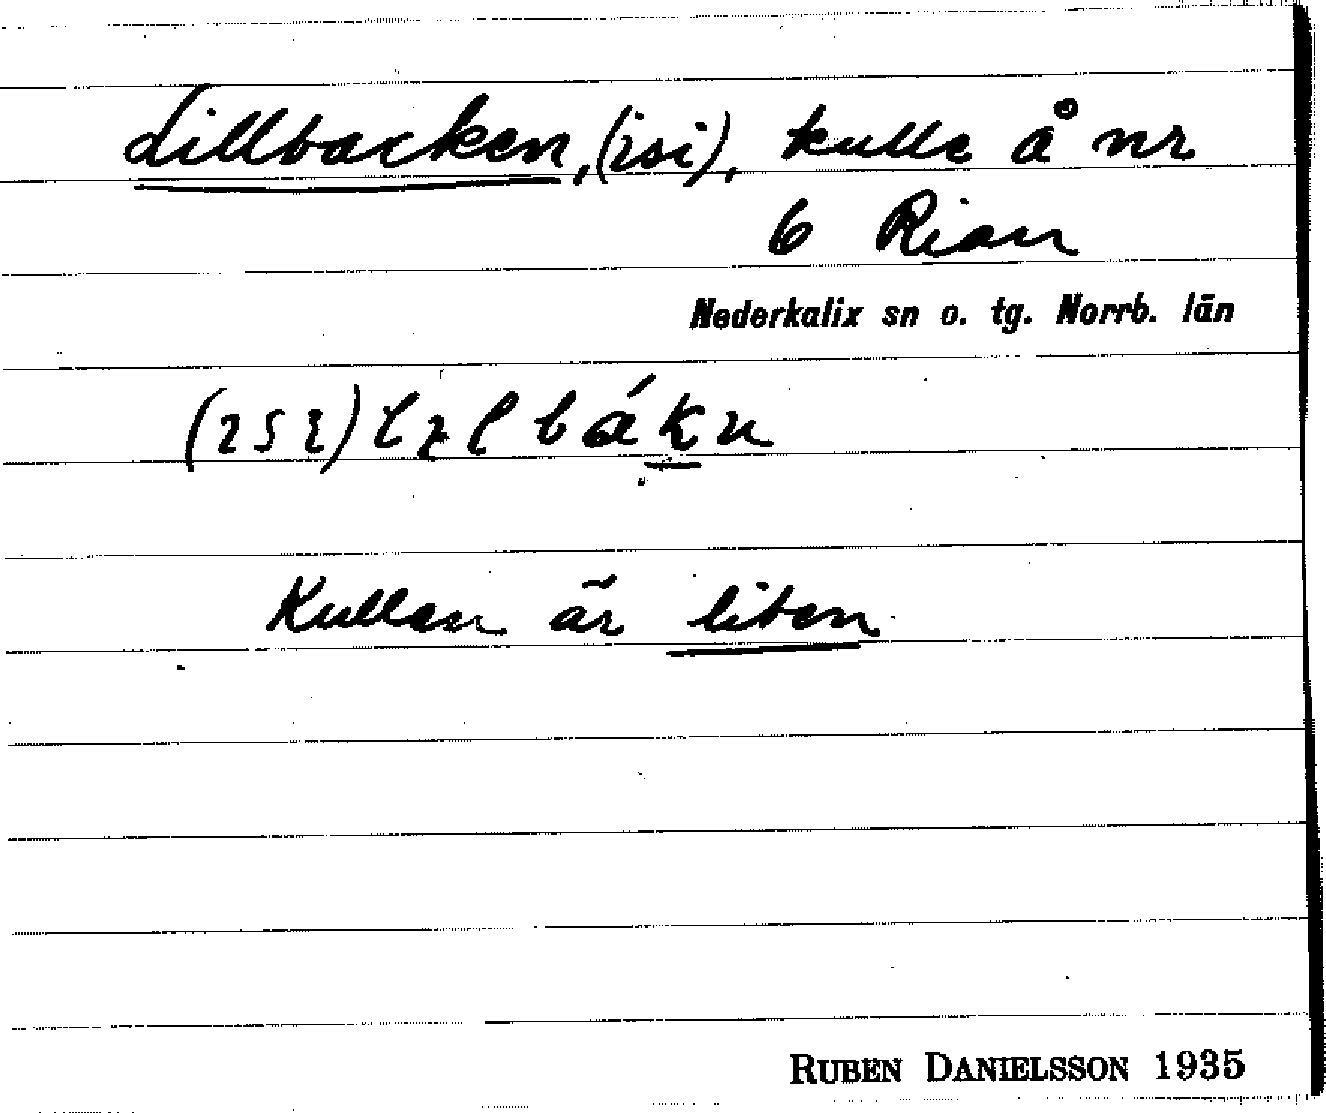 Lillbacken, (isi), kulle å nr
6 Rian
Nederkalix sn o. tg. Norrb. län
Kullen är liten
RUBEN DANIELSSON 1935